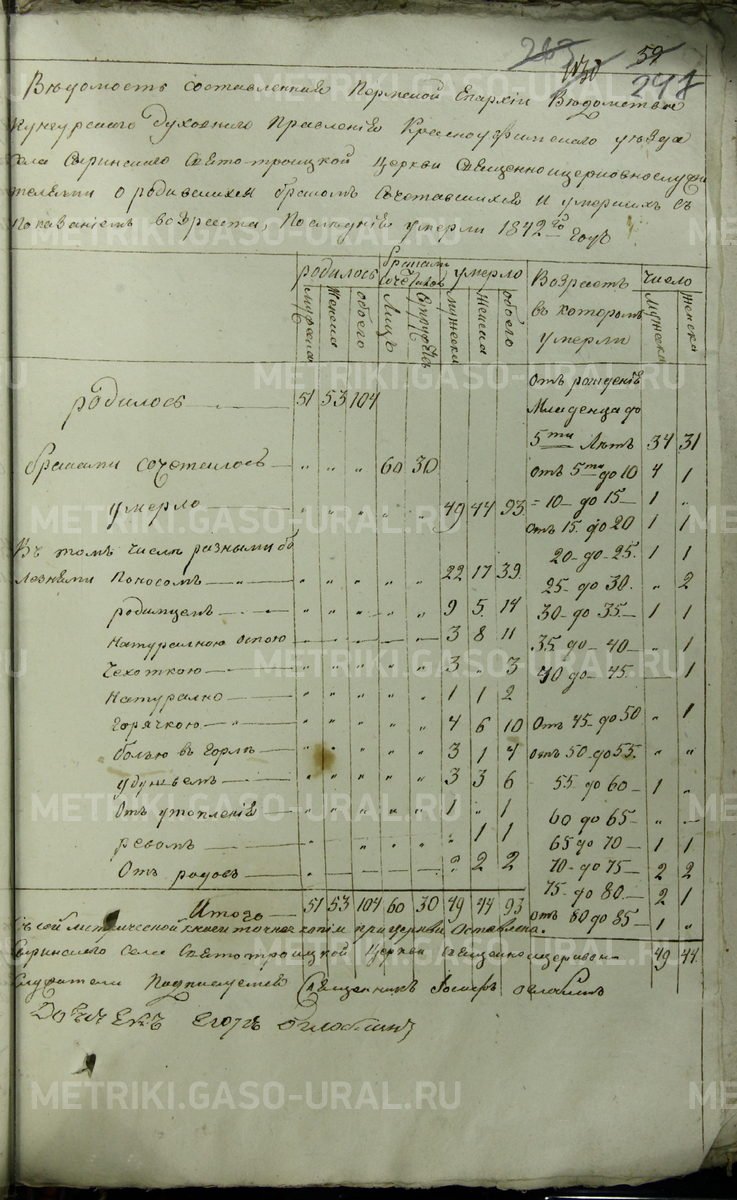 263 1030 52
247
Вѣдомость составленная Пермской Епархіи Вѣдомства
Кунгурскаго Духовнаго Правленія Красноуфимскаго уѣзда
села Сыринскаго Свято-троицкой церкви Священноицерковнослужи
телями о родившихся бракомъ Сочетавшихся и умершихъ съ
показаніемъ возраста, Послѣдніи умерли 1842го Годъ
родилось браками сочетались умерло Возрастъ въ которомъ умерли число
мужеска женска обоего Лицъ Супружевъ мужеска женска обоего Мужеска женска
родилось 51 53 104 отъ рожденія Младенца до 5ти Лѣтъ 34 31
браками сочеталось " " " 60 30 отъ 5ти до 10 4 1
умерло " " " " " 49 44 93 10 до 15 1 "
отъ 15 до 20 1 1
Въ томъ числѣ разными бо 20 до 25 1 1
лезнями Поносомъ " " " " " 22 17 39 25 до 30 " 2
родимцемъ " " " " " 9 5 14 30 до 35 1 1
Натуральною оспою 3 8 11 35 до 40 " 1
Чехоткою " " " " " 3 " 3 40 до 45 1
Натурально " " " " " 1 1 2
Горячкою " " " " " 4 6 10 отъ 45 до 50 " 1
болью въ горлѣ " " " " " 3 1 4 отъ 50 до 55 " "
удушьемъ " " " " " 3 3 6 55 до 60 1 "
Отъ утопленія " " " " " 1 " 1 60 до 65 "
ревомъ " " " " " 1 1 65 до 70 1 1
Отъ родовъ " 2 2 70 до 75 2 2
75 до 80 2 1
Итого 51 53 104 60 30 49 44 93 отъ 80 до 85 1 "
Съ сей метрической книги точная копія при церкви оставлена.
Сыринскаго села Святотроицкой Церкви Священноицерковно 49 44
служители Подписуемся Священникъ
Дьячекъ Егоръ
METRIKI.GASO-URAL.RU